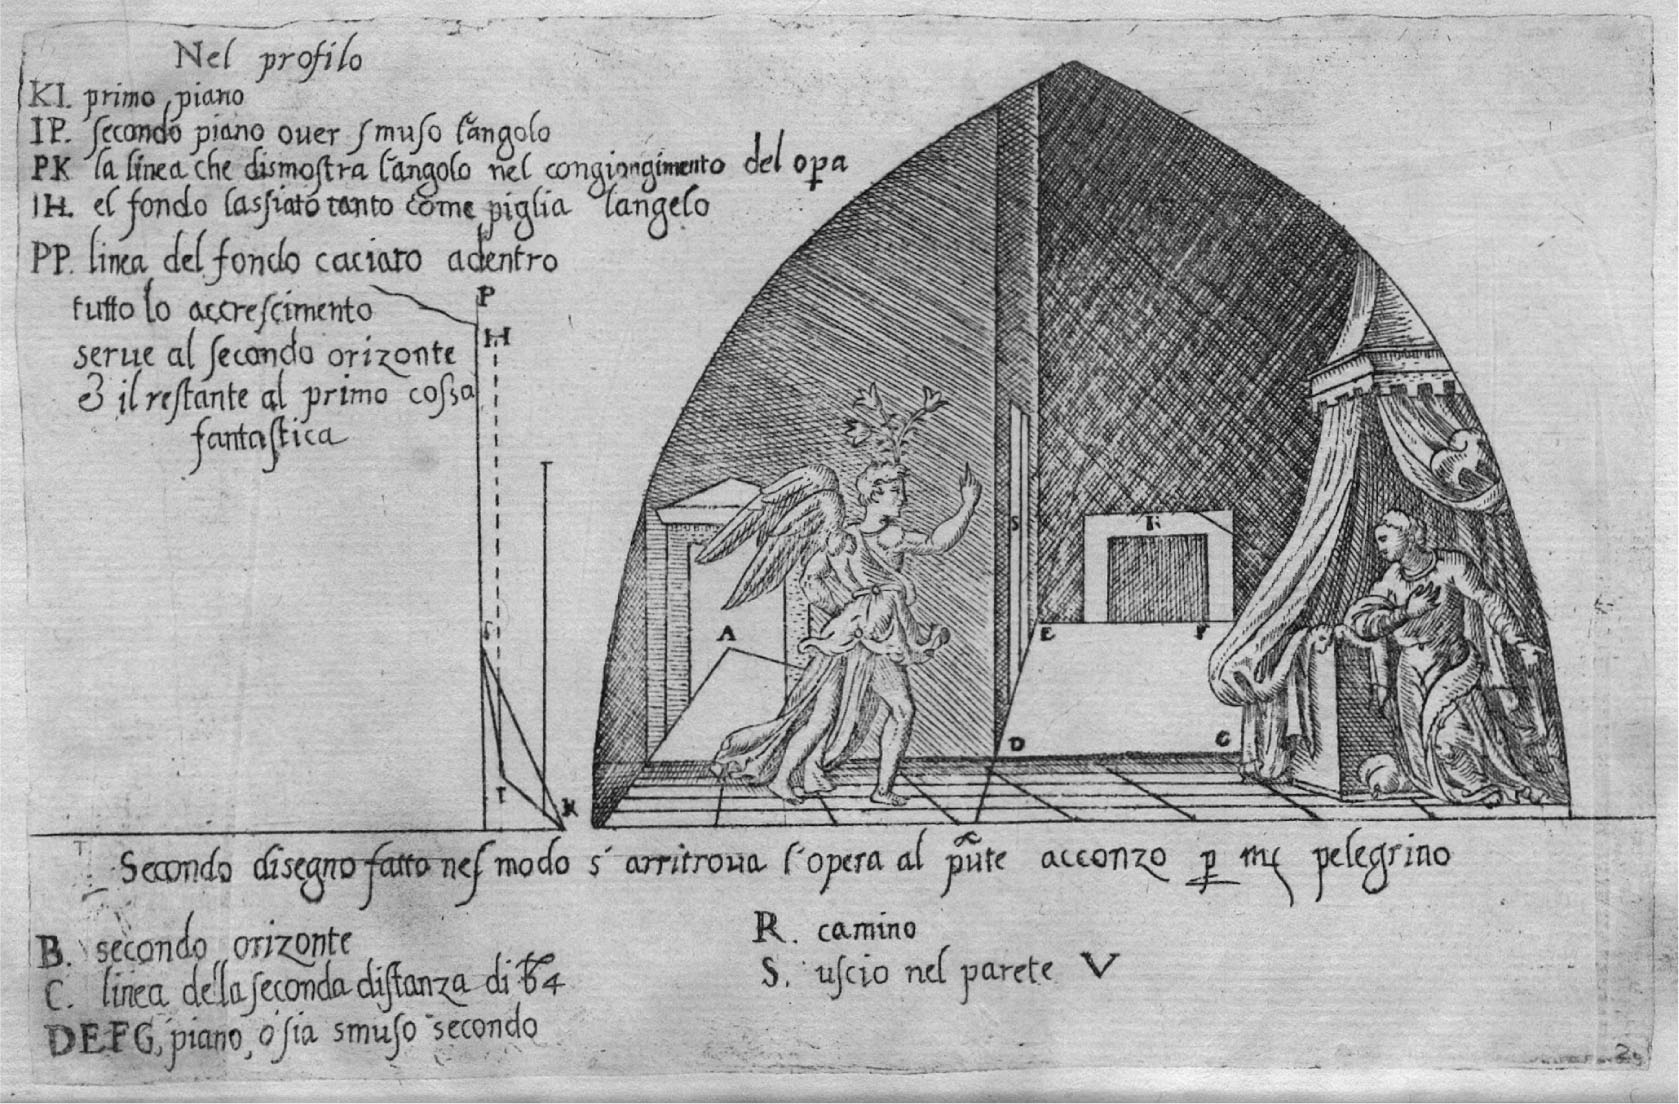 Nel profilo
KI. primo piano
IP. ſecondo piano ouer ſmuſo l'angolo
PK la linea che dismoſtra l'angolo nel congiongimento del opa
IH. el fondo laſſiato tanto come piglia langelo
PP. linea del fondo caciato adentro
tutto lo accreſcimento
serue al ſecondo orizonte
& il reſtante al primo coſsa
fantaſtica
P
H
I
K
A
S
R
E
F
D
G
Secondo disegno fatto nel modo s' arritroua l'opera al pñte acconzo p pelegrino
B. secondo orizonte
C. linea della ſeconda diſtanza di 4
DEFG, piano, o ſia smuſo secondo
R. camino
S. uſcio nel parete V